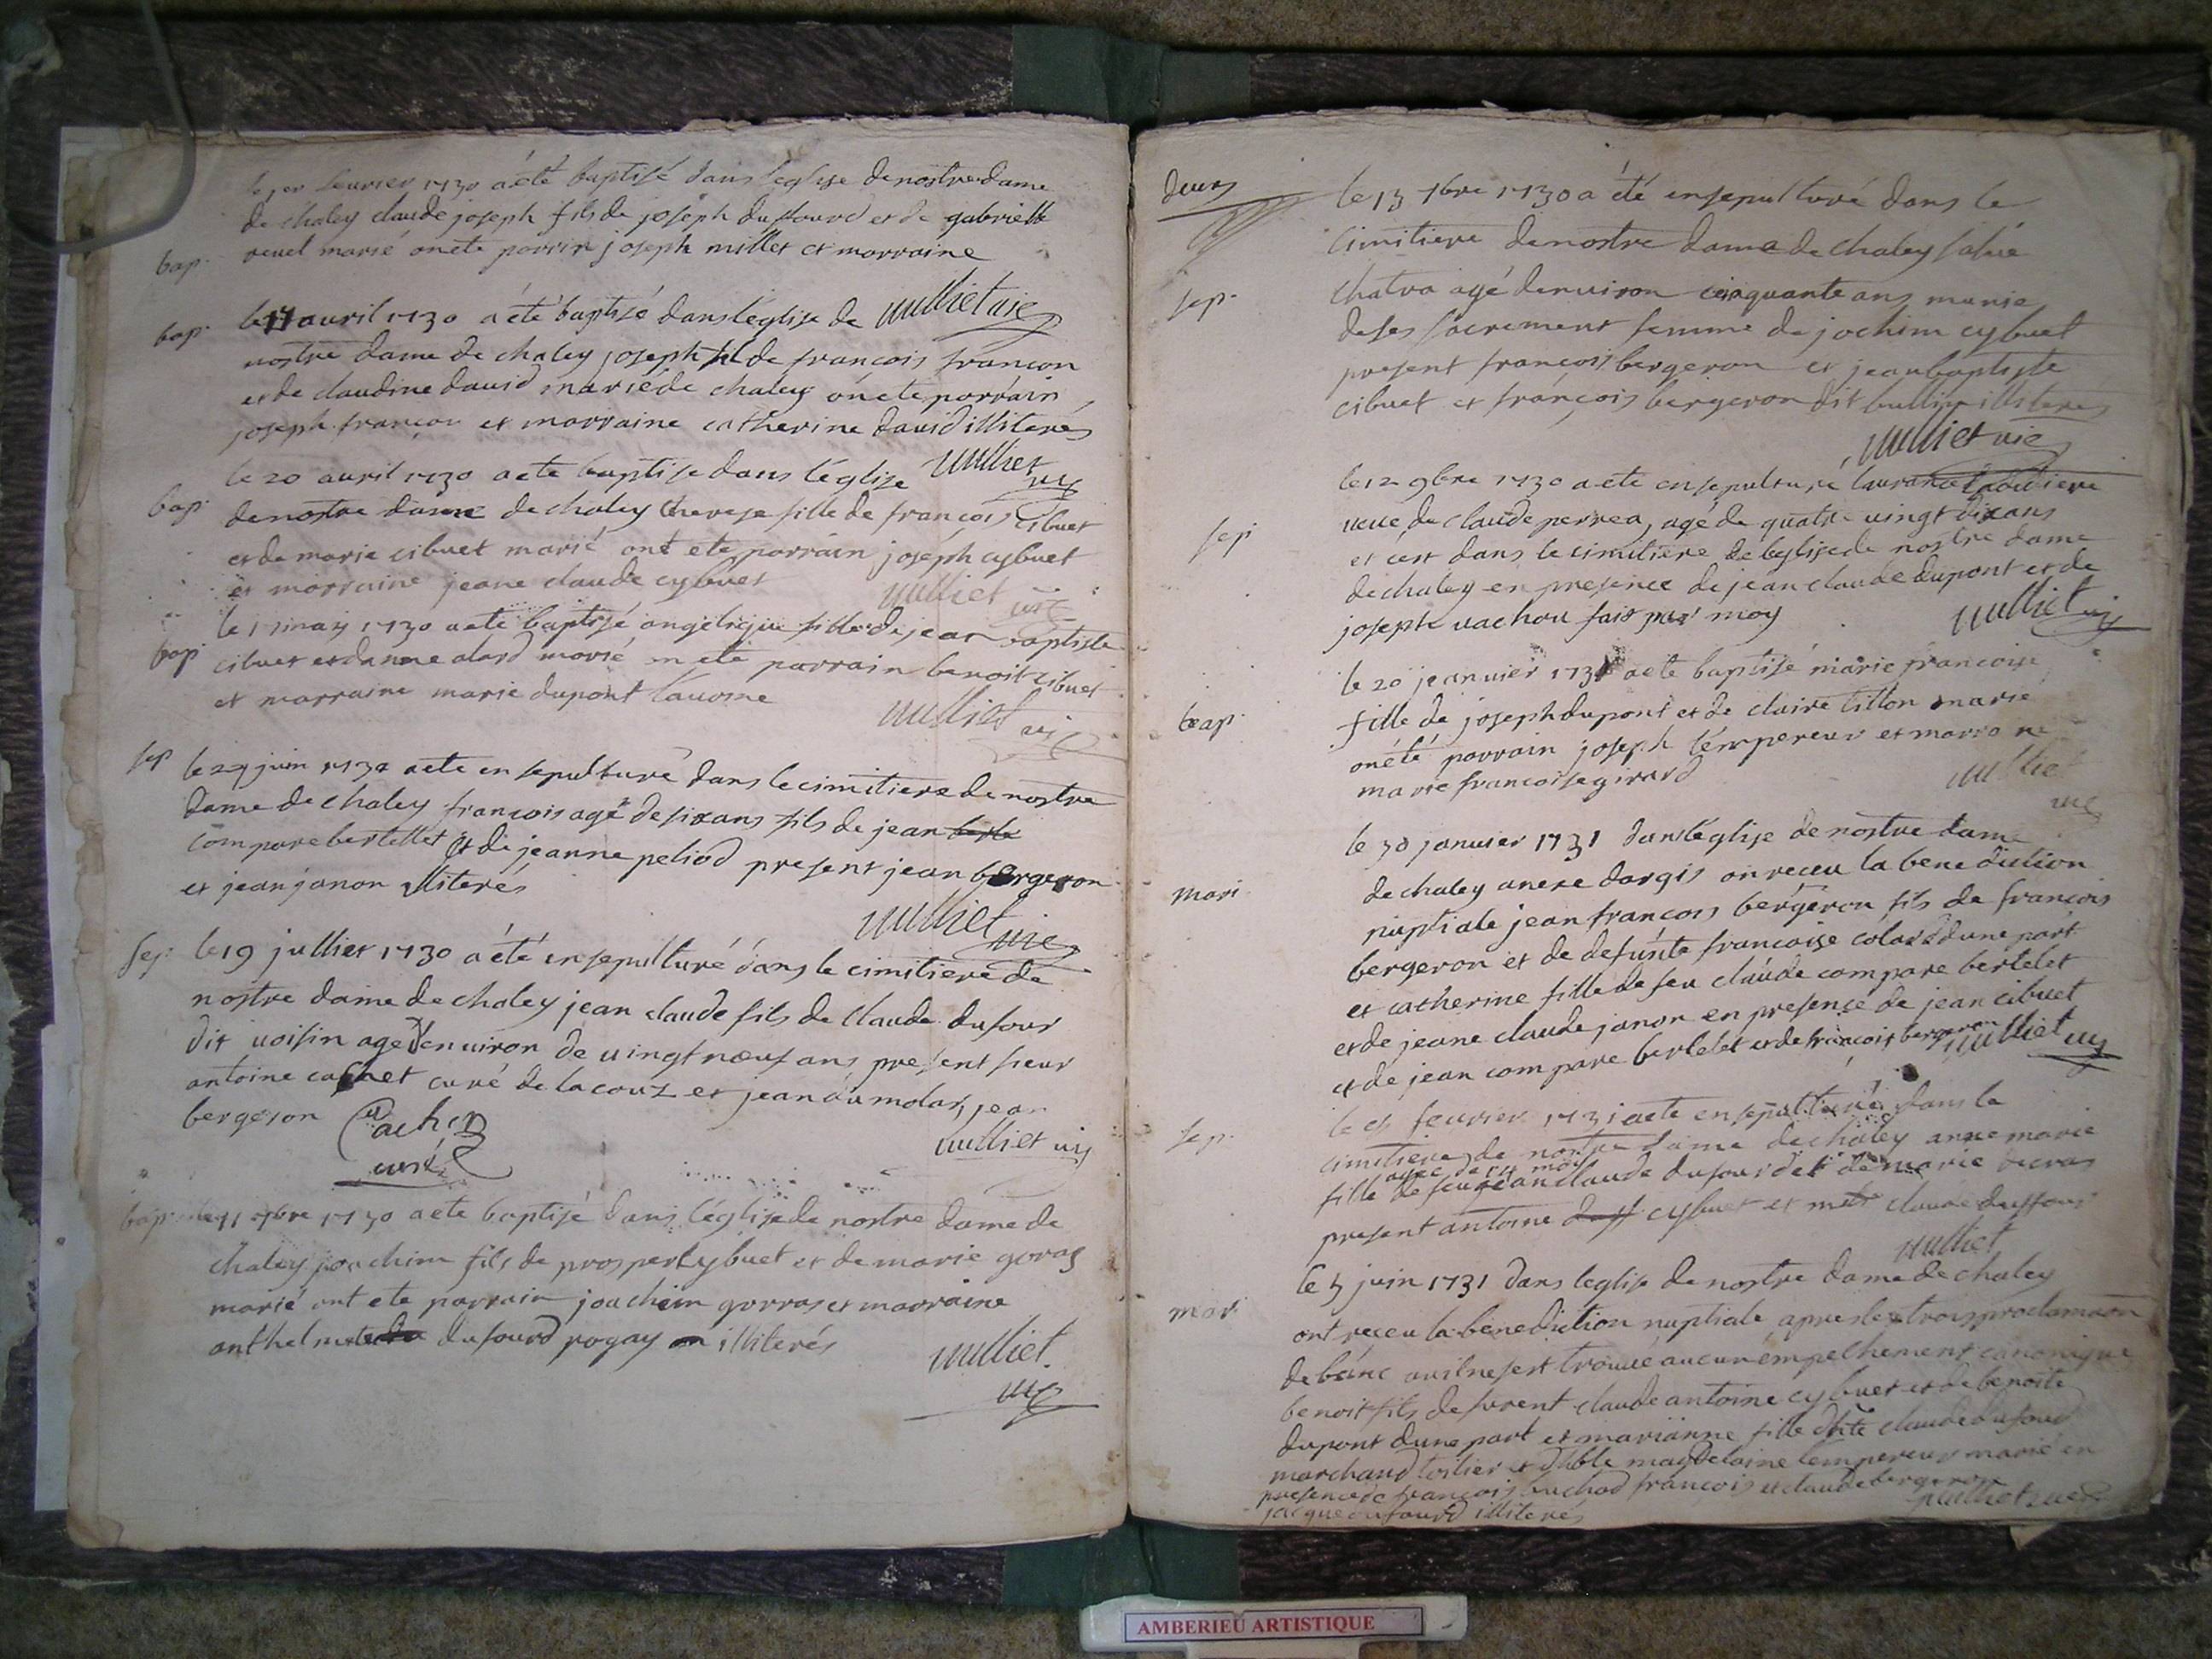 le 1er feurier 1730 a été baptisé dans leglise de nostre dame
de chaley claude joseph fils de joseph dufourd et de gabrielle
revel marié onété parrin joseph millet et marraine
bap.
bap. le 17 auril 1730 a été baptisé dans l'église de nulliet vic
nostre dame de chaley joseph fil de francois francon
et de claudine dauid marié de chaley on ete parrain
joseph francon et marraine catherine dauid illiterés
nulliet
vic
bap. le 20 auril 1730 a ete baptise dans l'église
de nostre dame de chaley therese fille de francois cibuet
et de marie cibuet marié ont ete parrain joseph cybuet
et marraine jeane claude cybuet
nulliet vic
bap. le 1 may 1730 a eté baptisé angelique fille de jean baptiste
cibuet et danne alard marié on eté parrain benoit cibuet
et marraine marie dupont
nulliet vic
sep le 29 juin 1730 a ete ensepulturé dans le cimitiere de nostre
dame de chaley francois agé de six ans fils de jean
compare bertellet et de jeanne peliod present jean bergeron
et jean janon illiterés
nulliet vic
sep. le 19 jullier 1730 a été ensepulturé dans le cimitiere de
nostre dame de chaley jean claude fils de claude dufour
dit uoisin agé denuiron de uingt nœuf ans present sieur
antoine cachet curé de lacouz et jean dumolar, jean
bergeron
Cachet
curé
nulliet vic
bap. le 11 7bre 1730 a ete baptisé dans l'église de nostre dame de
chaley joachim fils de prosper cybuet et de marie goras
marié ont ete parrain joachim gorras et marraine
anthelmete dufourd rogay illiterés
nulliet
vic
deces
le 13 7bre 1730 a été ensepulturé dans le
cimitiere de nostre dame de chaley
sep.
chatra agé denuiron cinquante ans munie
de ses sacrement femme de jochim cybuet
present francois bergeron et jean baptiste
cibuet et françois bergeron dit bullin illiterés
nulliet vic
le 12 9bre 1730 a ete ensepulturé laurance
sep
ueue de claude perrea, agé de quatre uingt dix ans
et cest dans le cimitiere de leglise de nostre dame
de chaley en presence de jean claude dupont et de
joseph uachou fais par moy
nulliet vic
le 20 januier 1731 a ete baptisé marie francoise
bap.
fille de joseph dupont et de claire tillon marié
onété parrain joseph lempereur et marra ne
marie francoise girard
nulliet
vic
le 30 januier 1731 dans l'église de nostre dame
mari
de chaley anexe dargis on receu la benediction
nuptiale jean francois bergeron fils de francois
bergeron et de defunte francoise colard dune part
et catherine fille de feu claude compare bertelet
et de jeane claude janon en presence de jean cibuet
et de jean compare bertelet et de francois bergeron
nulliet vic
sep.
le feurier 1731 a ete ensepulturé dans le
cimitiere de nostre dame de chaley anne marie
agee de mois
fille de feu jean claude dufourd et de marie
present antoine cybuet et claude duffour
nulliet
mari
le 5 juin 1731 dans leglise de nostre dame de chaley
ont receu la benediction nuptiale apres les trois proclamaon
de banc ou il ne sest trouué aucun empelchement canonique
benoit fils de furent claude antoine cybuet et de benoite
dupont dune part et marianne fille claude dufourd
marchand toilier et magdelaine lempereur marié en
presence de francois vuchod francois et claude bergeron
nulliet vic
jacque dufourd illiterés
AMBERIEU ARTISTIQUE